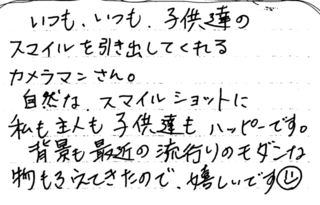 いつも、いつも、子供達の
スマイルを引き出してくれる
カメラマンさん。
自然な、スマイルショットに
私も主人も子供達も ハッピーです。
背景も最近の流行りのモダンな
物もふえてきたので、嬉しいです